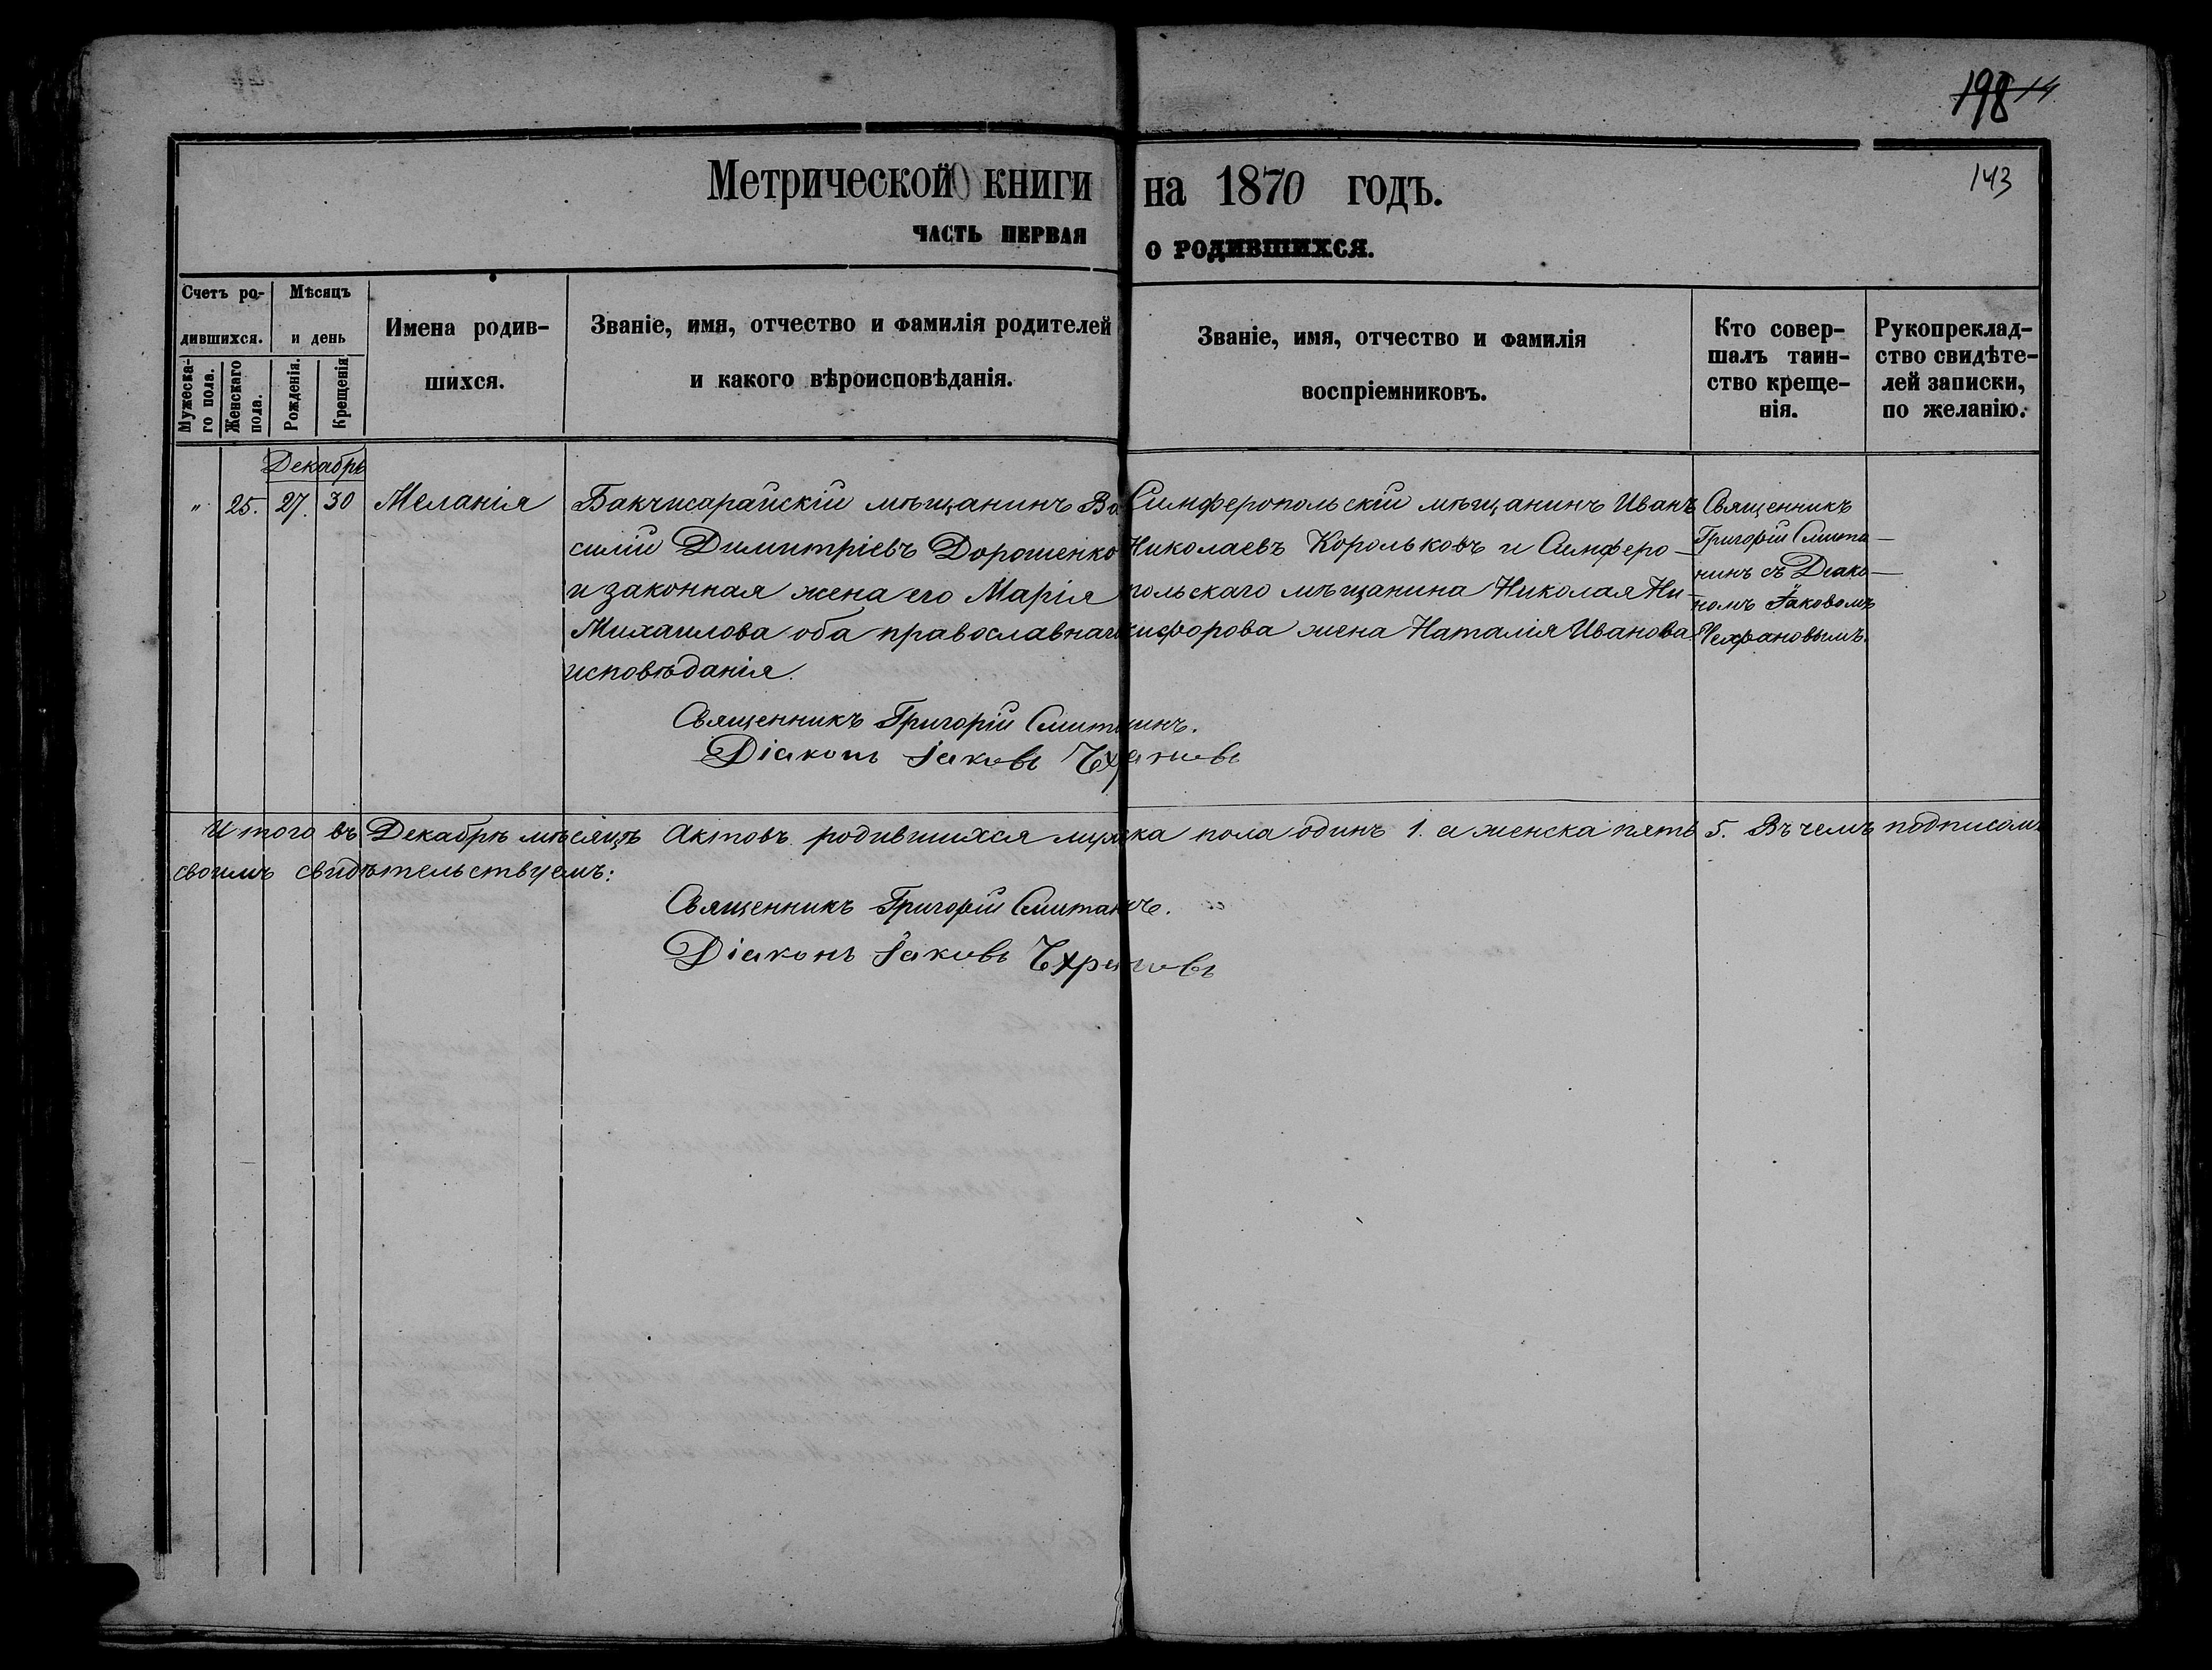 198 14
143
Метрической книги на 1870 годъ.
ЧАСТЬ ПЕРВАЯ О РОДИВШИХСЯ.
Счетъ ро-
дившихся.
Мужеска-
го пола.
Женскаго
пола.
Мѣсяцъ
и день
Рожденія.
Крещенія
Имена родив-
шихся.
Званіе, имя, отчество и фамилія родителей
и какого вѣроисповѣданія.
Званіе, имя, отчество и фамилія
воспріемниковъ.
Кто совер-
шалъ таин-
ство креще-
нія.
Рукопреклад-
ство свидѣте-
лей записки,
по желанію.
Декабрь
„ 25. 27. 30 Меланія
Бакчисарайскій мѣщанинъ Ва
силій Димитріевъ Дорошенко
и законная жена его Марія
Михаилова оба православнаго
исповѣданія.
Симферопольскій мѣщанинъ Иванъ
Николаевъ Корольковъ и Симферо-
польскаго мѣщанина Николая Ни-
кифорова жена Наталія Иванова.
Священникъ
Григорій Смита-
нинъ съ Діако-
номъ Іаковомъ
Священникъ Григорій Смитанинъ.
Діаконъ Іаковъ
Итого въ Декабрѣ мѣсяцѣ Актовъ родившихся мужска пола одинъ 1. а женска пять 5. Въ чемъ подписомъ
своимъ свидѣтельствуемъ:
Священникъ Григорій
Діаконъ Іаковъ